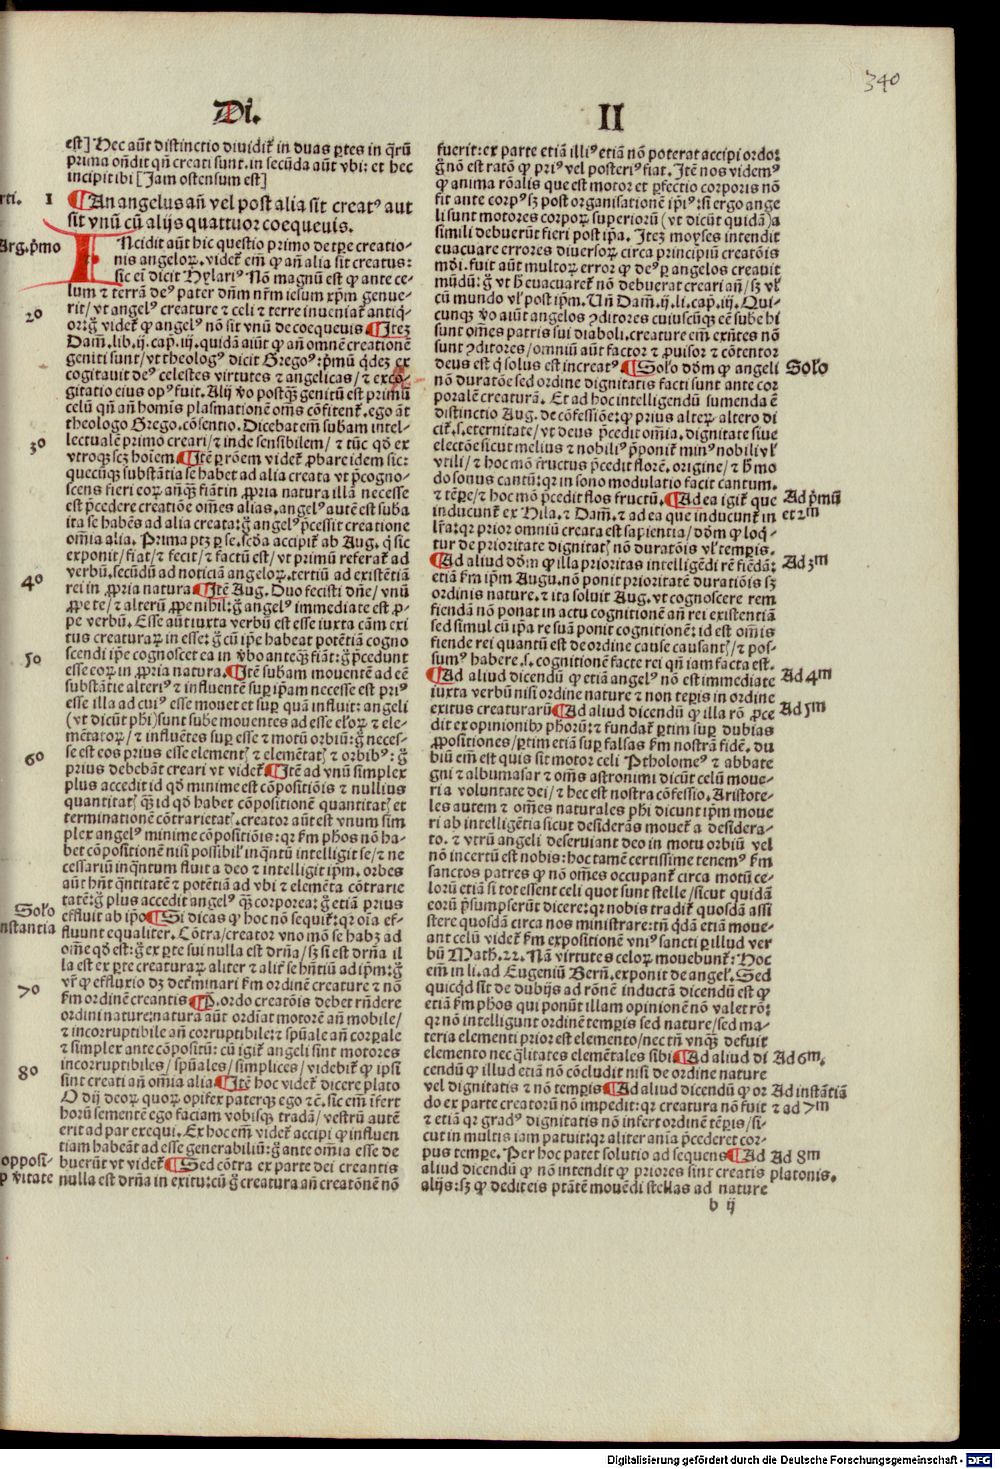 340
Di.
II
est] Hec aūt distinctio diuidit̄ in duas ꝑtes in q̄rū
prima on̄dit qn̄ creati sunt. in secūda aūt vbi: et hec
incipit ibi [Jam ostensum est]
rti. 1 ¶An angelus an̄ vel post alia sit creatꝰ aut
sit vnū cū alijs quattuor coequeuis.
Arg.p̄mo INcidit aūt hic questio primo de tp̄re creatio-
nis angeloꝝ. videt̄ em̄ ꝙ an̄ alia sit creatus:
sic em̄ dicit Hylariꝰ Nō magnū est ꝙ ante ce-
lum ⁊ terrā deꝰ pater dn̄m nr̄m iesum xp̄m genue-
20 rit/vt angelꝰ creature ⁊ celi ⁊ terre inueniat̄ antiq̄-
or: g̊ videt̄ ꝙ angelꝰ nō sit vnū de coequeuis ¶Itez
Dam̄. lib. ij. cap. iij. quidā aiūt ꝙ an̄ omnē creationē
geniti sunt/vt theologꝰ dicit Gregoꝰ: p̄mū q̄dez ex
cogitauit deꝰ celestes virtutes ⁊ angelicas/⁊ exco-
gitatio eius opꝰ fuit. Alij v̊o postq̄ꝫ genitū est primū
celū qn̄ an̄ homīs plasmationē om̄s cōfitent̄. ego āt
theologo Grego. cōsentio. Dicebat em̄ subam intel-
30 lectualē primo creari/⁊ inde sensibilem/⁊ tūc qd̄ ex
vtroqꝫ scꝫ hoīem ¶Itē ꝑ rōem videt̄ ꝓbare idem sic:
quecūqꝫ substātia se habet ad alia creata vt p̄cogno-
scens fieri eoꝝ anq̄ꝫ fiāt in ꝓpria natura illā necesse
est p̄cedere creatiōe omēs alias. angelꝰ autē est suba
ita se habēs ad alia creata: g̊ angelꝰ p̄cessit creatione
om̄ia alia. Prima ptꝫ ꝑ se. scd̄a accipit̄ ab Aug. q̄ sic
exponit/fiat/⁊ fecit/⁊ factū est/vt primū referat̄ ad
verbū. secūdū ad noticiā angeloꝝ. tertiū ad existētiā
40 rei in ꝓpria natura ¶Itē Aug. Duo fecisti dn̄e/vnū
ꝓpe te/⁊ alterū ꝓpe nihil: g̊ angelꝰ immediate est ꝓ-
pe verbū. Esse aūt iuxta verbū est esse iuxta cām exi
tus creaturaꝝ in esse: g̊ cū ip̄e habeat potētiā cogno
50 scendi ip̄e cognoscet ea in v̊bo anteqꝫ fiāt: g̊ p̄cedunt
esse eoꝝ in ꝓpria natura. ¶Itē subam mouentē ad eē
substātie alteriꝰ ⁊ influentē suꝑ ip̄am necesse est priꝰ
esse illa ad cuiꝰ esse mouet et suꝑ quā influit: angeli
(vt dicūt ph̄i) sunt sube mouentes ad esse eloꝝ ⁊ ele-
mētatoꝝ/⁊ influētes suꝑ esse ⁊ motū orbiū: g̊ neces-
60 se est eos prius esse elementꝭ ⁊ elemētatꝭ ⁊ orbibꝰ: g̊
prius debebāt creari vt videt̄ ¶Itē ad vnū simplex
plus accedit id qd̄ minime est cōpositiōis ⁊ nullius
quantitatꝭ qꝫ id qd̄ habet cōpositionē quantitatꝭ et
terminationē cōtrarietatꝭ. creator aūt est vnum sim
plex angelꝰ minime cōpositiōis: qꝛ ẜm phōs nō ha-
bet cōpositionē nisi possibil̄ inq̄ntū intelligit se/⁊ ne
cessariū inq̄ntum fluit a deo ⁊ intelligit ip̄m. orbes
aūt hn̄t q̄ntitatē ⁊ potētiā ad vbi ⁊ elemēta cōtrarie
tatē: g̊ plus accedit angelꝰ qꝫ corporea: g̊ etiā prius
Solō nstantia effluit ab ip̄o ¶Si dicas ꝙ hoc nō sequit̄: qꝛ oīa ef-
fluunt equaliter. Cōtra/creator vno mō se habꝫ ad
om̄e qd̄ est: g̊ ex ꝑte sui nulla est drn̄a/sꝫ si est drn̄a il
la est ex ꝑte creaturaꝝ aliter ⁊ alit̄ se hn̄tiū ad ip̄m: g̊
70 vr̄ ꝙ effluxio dꝫ det̄minari ẜm ordinē creature ⁊ nō
ẜm ordinē creantis ¶P. ordo creatōis debet rn̄dere
ordini nature: natura aūt ordiat motorē an̄ mobile/
⁊ incorruptibile an̄ corruptibile: ⁊ spūale an̄ corꝑale
⁊ simplex ante cōpositū: cū igit̄ angeli sint motores
80 incorruptibiles/spūales/simplices/videbit̄ ꝙ ipsi
sint creati an̄ om̄ia alia ¶Itē hoc videt̄ dicere plato
O dij deoꝝ quoꝝ opifex paterqꝫ ego ⁊c̄. sic em̄ īfert
horū sementē ego faciam vobisqꝫ tradā/vestrū autē
erit ad par exequi. Ex hoc em̄ videt̄ accipi ꝙ influen
tiam habeāt ad esse generabiliū: g̊ ante om̄ia esse de
opposi- buerūt vt videt̄ ¶Sed cōtra ex parte dei creantis
p v̄itate nulla est drn̄a in exitu: cū g̊ creatura an̄ creatōnē nō
fuerit: ex parte etiā illiꝰ etiā nō poterat accipi ordo:
g̊ nō est ratō ꝙ priꝰ vel posteriꝰ fiat. Itē nos videmꝰ
ꝙ anima rōalis que est motor et ꝑfectio corporis nō
fit ante corpꝰ sꝫ post organisationē ip̄iꝰ: si ergo ange
li sunt motores corpoꝝ superiorū (vt dicūt quidā) a
simili debuerūt fieri post ip̄a. Itez moyses intendit
euacuare errores diuersoꝝ circa principiū creatōis
mūdi. fuit aūt multoꝝ error ꝙ deꝰ ꝑ angelos creauit
mūdū: g̊ vt h̄ euacuaret̄ nō debuerat creari an̄/sꝫ vl̄
cū mundo vl̄ post ip̄m. Un̄ Dam̄. ij. li. cap. iij. Qui-
cunqꝫ v̊o aiūt angelos ꝯditores cuiuscūqꝫ eē sube hi
sunt om̄es patris sui diaboli. creature em̄ exn̄tes nō
sunt ꝯditores/omniū aūt factor ⁊ ꝓuisor ⁊ cōtentor
deus est q̄ solus est increatꝰ. ¶Solō dd̄m ꝙ angeli Solō
nō duratōe sed ordine dignitatis facti sunt ante cor
poralē creaturā. Et ad hoc intelligendū sumenda ē
distinctio Aug. de cōfessiōe: ꝙ prius alteꝝ altero di
cit̄. s. eternitate/vt deus p̄cedit om̄ia. dignitate siue
electōe sicut melius ⁊ nobiliꝰ p̄ponit̄ minꝰ nobili vl̄
vtili/⁊ hoc mō fructus p̄cedit florē. origine/⁊ h̄ mo
do sonus cantū: qꝛ in sono modulatio facit cantum.
⁊ tēp̄e/⁊ hoc mō p̄cedit flos fructū. ¶Ad ea igit̄ que Ad p̄mū
inducunt̄ ex Hila. ⁊ Dam̄. ⁊ ad ea que inducunt̄ in et 2m
lr̄a: qꝛ prior omniū creata est sapientia/dd̄m ꝙ loq̄-
tur de prioritate dignitatꝭ nō duratōis vl̄ tempīs.
¶Ad aliud dd̄m ꝙ illa prioritas intelligēdi rē fiēdā: Ad 3m
etiā ẜm ip̄m Augu. nō ponit prioritatē duratiōis sꝫ
ordinis nature. ⁊ ita soluit Aug. vt cognoscere rem
fiendā nō ponat in actu cognitionē an̄ rei existentiā
sed simul cū ip̄a re suā ponit cognitionē: id est om̄is
fiende rei quantū est de ordine cause causantꝭ/⁊ pos-
sumꝰ habere. s. cognitionē facte rei qn̄ iam facta est.
¶Ad aliud dicendū ꝙ etiā angelꝰ nō est immediate Ad 4m
iuxta verbū nisi ordine nature ⁊ non tp̄ris in ordine
exitus creaturarū ¶Ad aliud dicendū ꝙ illa rō ꝓce Ad 5m
dit ex opinionibꝫ phōrū: ⁊ fundat̄ ꝑtim suꝑ dubias
ꝓpositiones/ꝑtim etiā suꝑ falsas ẜm nostrā fidē. du
biū em̄ est quis sit motor celi Ptholomeꝰ ⁊ abbate
gni ⁊ albumasar ⁊ om̄s astronimi dicūt celū moue-
ri a voluntate dei/⁊ hec est nostra cōfessio. Aristote-
les autem ⁊ om̄es naturales phi dicunt ip̄m moue
ri ab intelligētia sicut desiderās mouet̄ a desidera-
to. ⁊ vtrū angeli deseruiant deo in motu orbiū vel
nō incertū est nobis: hoc tamē certissime tenemꝰ ẜm
sanctos patres ꝙ nō om̄es occupant̄ circa motū ce-
lorū etiā si tot essent celi quot sunt stelle/sicut quidā
eorū p̄sumpserūt dicere: qꝛ nobis tradit̄ quosdā assi
stere quosdā circa nos ministrare: tn̄ q̄dā etiā moue-
ant celū videt̄ ẜm expositionē vniꝰ sancti ꝑ illud ver
bū Math. 22. Nā virtutes celoꝝ mouebunt̄: Hoc
em̄ in li. ad Eugeniū Bern̄. exponit de angel̄. Sed
quicqd̄ sit de dubijs ad rōnē inductā dicendū est ꝙ
etiā ẜm phos qui ponūt illam opinionē nō valet rō:
qꝛ nō intelligunt ordinē temꝑis sed nature/sed ma-
teria elementi prior est elemento/nec tn̄ vnqꝫ defuit
elemento nec q̄litates elemētales sibi ¶Ad aliud di Ad 6m.
cendū ꝙ illud etiā nō cōcludit nisi de ordine nature
vel dignitatis ⁊ nō temꝑis ¶Ad aliud dicendū ꝙ or Ad instātiā
do ex parte creatorū nō impedit: qꝛ creatura nō fuit ⁊ ad 7m
⁊ etiā qꝛ gradꝰ dignitatis nō infert ordinē tēꝑis/si-
cut in multis iam patuit: qꝛ aliter anīa p̄cederet cor-
pus tempe. Per hoc patet solutio ad sequens ¶Ad Ad 8m
aliud dicendū ꝙ nō intendit ꝙ priores sint creatis platonis.
alijs: sꝫ ꝙ dedit eis ptātē mouēdi stellas ad nature
b ij
Digitalisierung gefördert durch die Deutsche Forschungsgemeinschaft - DFG